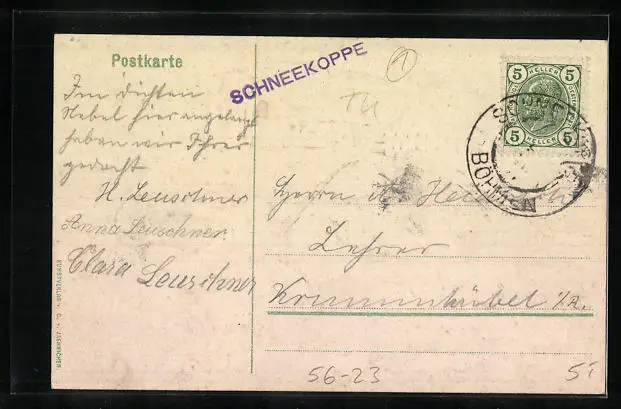 Postkarte
SCHNEEKOPPE
Im dichten
Nebel hier angelangt
haben wir Ihrer
gedacht
H. Leuschner
Anna Leuschner
Clara Leuschner
5 HELLER 5
5 HELLER 5
BÖHMEN
Herrn
Lehrer
Krummhübel i/R.
56-23